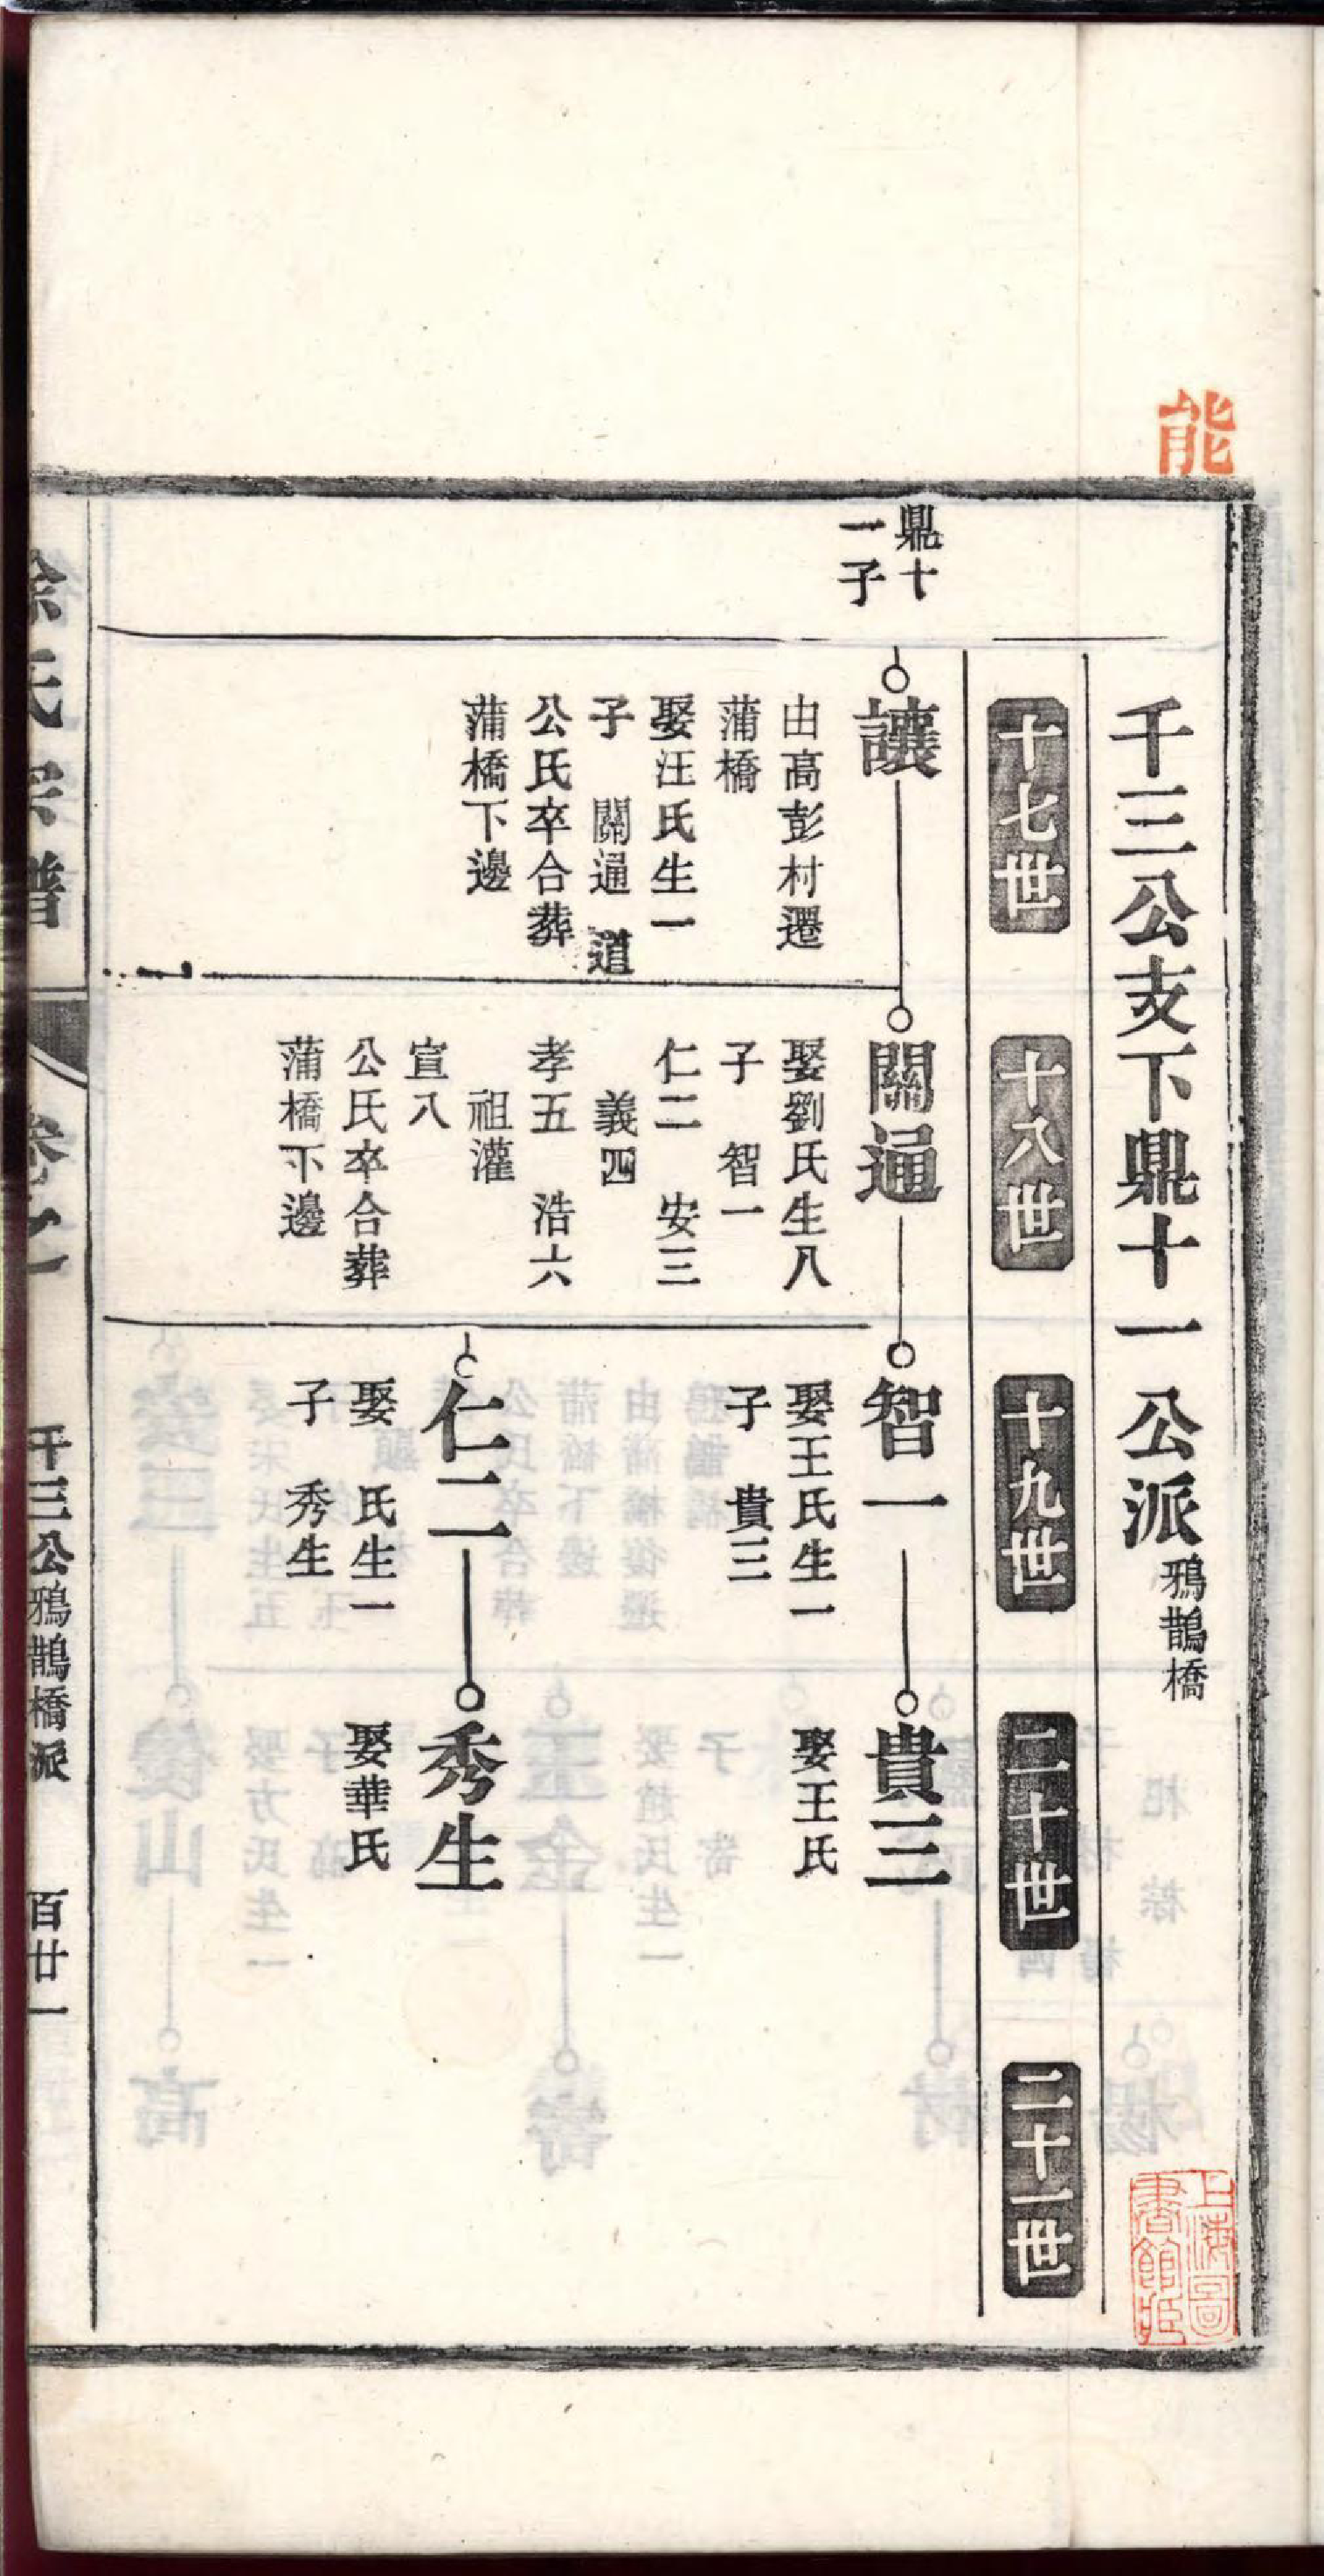 能
千三公支下鼎十一公派鴉鵲橋
十七世
十八世
十九世
二十世
二十一世
鼎十
一子
讓
由高彭村遷
蒲橋
娶汪氏生一
子 關通 道
公氏卒合葬
蒲橋下邊
關通
娶劉氏生八
子 智一
仁二 安三
義四
孝五 浩六
祖灌
宣八
公氏卒合葬
蒲橋下邊
智一
娶王氏生一
子 貴三
仁二
娶 氏生一
子 秀生
貴三
娶王氏
秀生
娶華氏
氏宗譜
卷之
千三公鴉鵲橋派
百廿一
上海圖
書館